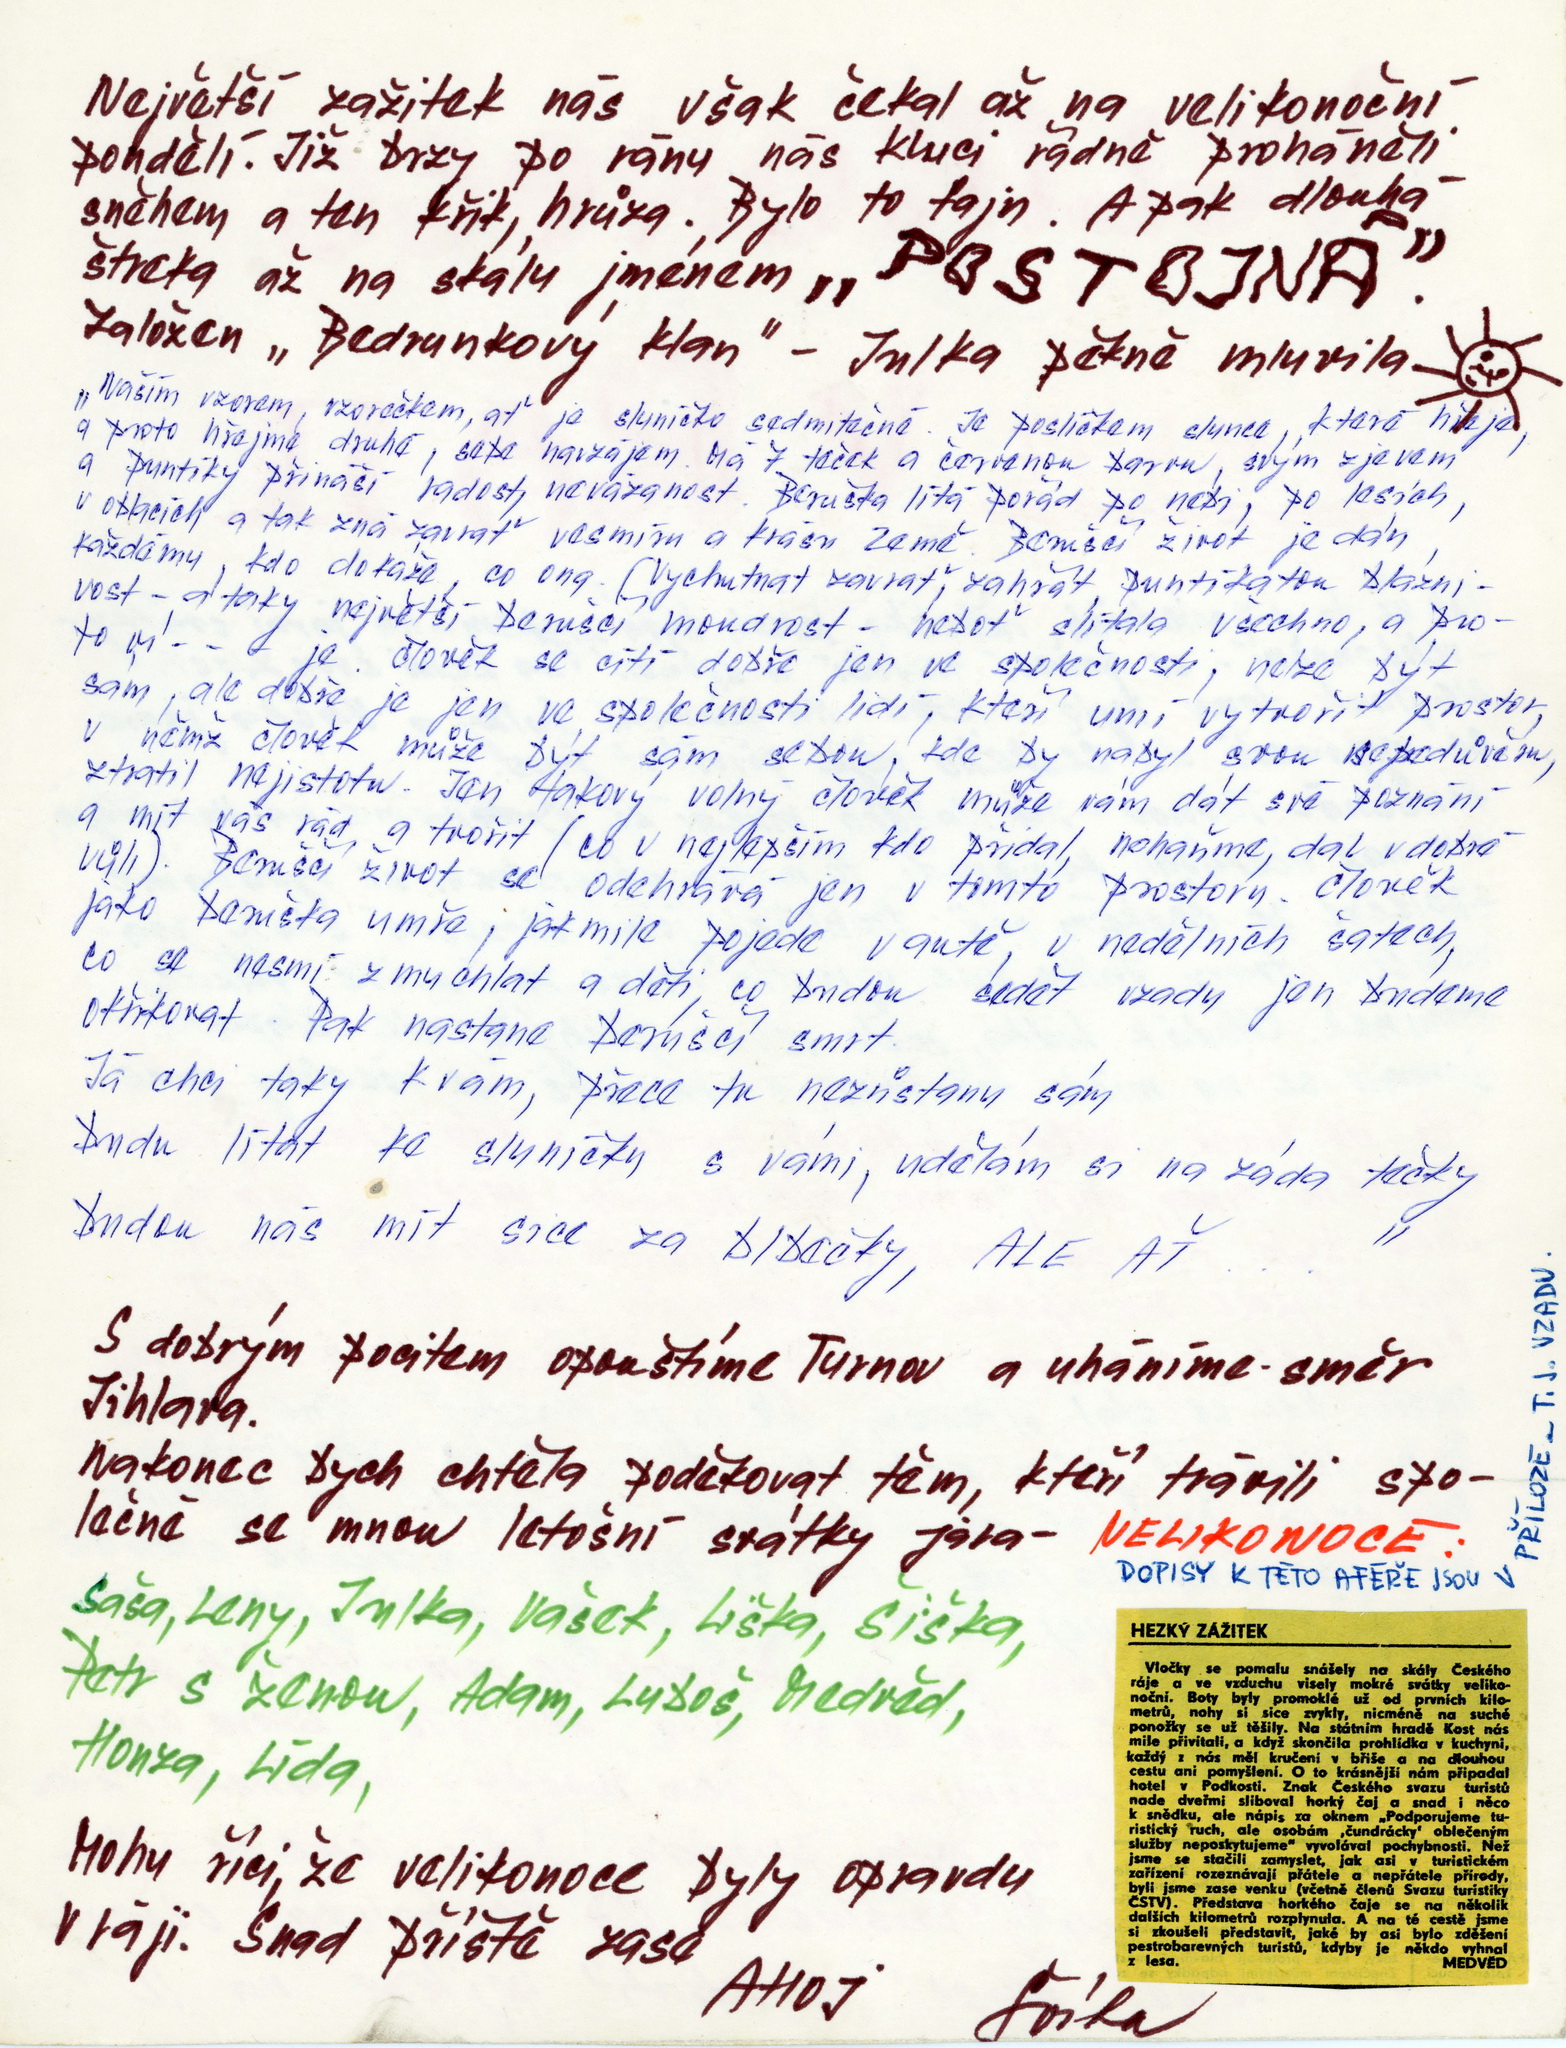 Největší zažitek nás však čekal až na velikonoční
pondělí. Již brzy po ránu nás kluci řádně proháněli
sněhem a ten křik, hrůza. Bylo to fajn. A pak dlouhá
štreka až na skálu jménem „POSTOJNÁ".
Založen „Bedrunkový klan" – Julka pěkně mluvila
„Naším vzorem, vzorečkem, ať je sluníčko sedmitečné. Je poslíčkem slunce, které hřeje,
a proto hřejme druhé, sebe navzájem. Má 7 teček a červenou barvu, svým zjevem
a puntíky přináší radost, nevázanost. Beruška lítá pořád po nebi, po lesích,
v oblacích a tak zná závrať vesmíru a krásu Země. Beruščí život je dán,
každému, kdo dokáže, co ona. (Vychutnat závrať, zahřát, puntíkatou blázni-
vost – a taky největší beruščí moudrost – neboť slítala všechno, a pro-
to ví - - - je. Člověk se cítí dobře jen ve společnosti, nelze být
sám, ale dobře je jen ve společnosti lidí, kteří umí vytvořit prostor,
v němž člověk může být sám sebou, kde by nabyl svou sebedůvěru,
ztratil nejistotu. Jen takový volný člověk může vám dát své poznání
a mít vás rád a tvořit (co v nejlepším kdo přidal, nehaňme, dal v dobré
vůli). Beruščí život se odehrává jen v tomto prostoru. Člověk
jako beruška umře, jakmile pojede v autě, v nedělních šatech,
co se nesmí zmuchlat a děti, co budou sedět vzadu jen budeme
okřikovat. Pak nastane beruščí smrt.
Já chci taky k vám, přece tu nezůstanu sám
budu lítat ke sluníčku s vámi, udělám si na záda tečky
budou nás mít sice za blbečky, ALE AŤ . . . "
S dobrým pocitem opouštíme Turnov a uháníme směr
Jihlava.
Nakonec bych chtěla poděkovat těm, kteří trávili spo-
lečně se mnou letošní svátky jara – VELIKONOCE:
DOPISY K TÉTO AFÉŘE JSOU V
PŘÍLOZE – T.J. VZADU.
Sáša, Leny, Julka, Vašek, Liška, Šiška,
Petr s ženou, Adam, Luboš, Medvěd,
Honza, Lída,
Mohu říci, že velikonoce byly opravdu
v ráji. Snad příště zase
AHOJ
HEZKÝ ZÁŽITEK
Vločky se pomalu snášely na skály Českého
ráje a ve vzduchu visely mokré svátky veliko-
noční. Boty byly promoklé už od prvních kilo-
metrů, nohy si sice zvykly, nicméně na suché
ponožky se už těšily. Na státním hradě Kost nás
mile přivítali, a když skončila prohlídka v kuchyni,
každý z nás měl kručení v břiše a na dlouhou
cestu ani pomyšlení. O to krásnější nám připadal
hotel v Podkosti. Znak Českého svazu turistů
nade dveřmi sliboval horký čaj a snad i něco
k snědku, ale nápis za oknem „Podporujeme tu-
ristický ruch, ale osobám ‚čundrácky' oblečeným
služby neposkytujeme" vyvolával pochybnosti. Než
jsme se stačili zamyslet, jak asi v turistickém
zařízení rozeznávají přátele a nepřátele přírody,
byli jsme zase venku (včetně členů Svazu turistiky
ČSTV). Představa horkého čaje se na několik
dalších kilometrů rozplynula. A na té cestě jsme
si zkoušeli představit, jaké by asi bylo zděšení
pestrobarevných turistů, kdyby je někdo vyhnal
z lesa. MEDVĚD